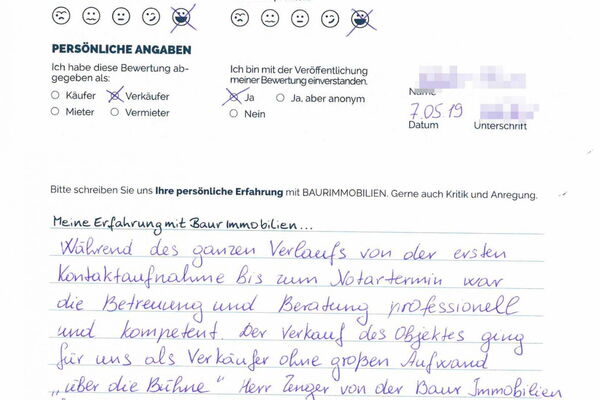 PERSÖNLICHE ANGABEN
Ich habe diese Bewertung ab-
gegeben als:
Käufer Verkäufer
Mieter Vermieter
Ich bin mit der Veröffentlichung
meiner Bewertung einverstanden.
Ja Ja, aber anonym
Nein
Name
7.05.19
Datum Unterschrift
Bitte schreiben Sie uns Ihre persönliche Erfahrung mit BAURIMMOBILIEN. Gerne auch Kritik und Anregung.
Meine Erfahrung mit Baur Immobilien...
Während des ganzen Verlaufs von der ersten
Kontaktaufnahme bis zum Notartermin war
die Betreuung und Beratung professionell
und kompetent. Der Verkauf des Objektes ging
für uns als Verkäufer ohne großen Aufwand
„über die Bühne" Herr Zenger von der Baur Immobilien